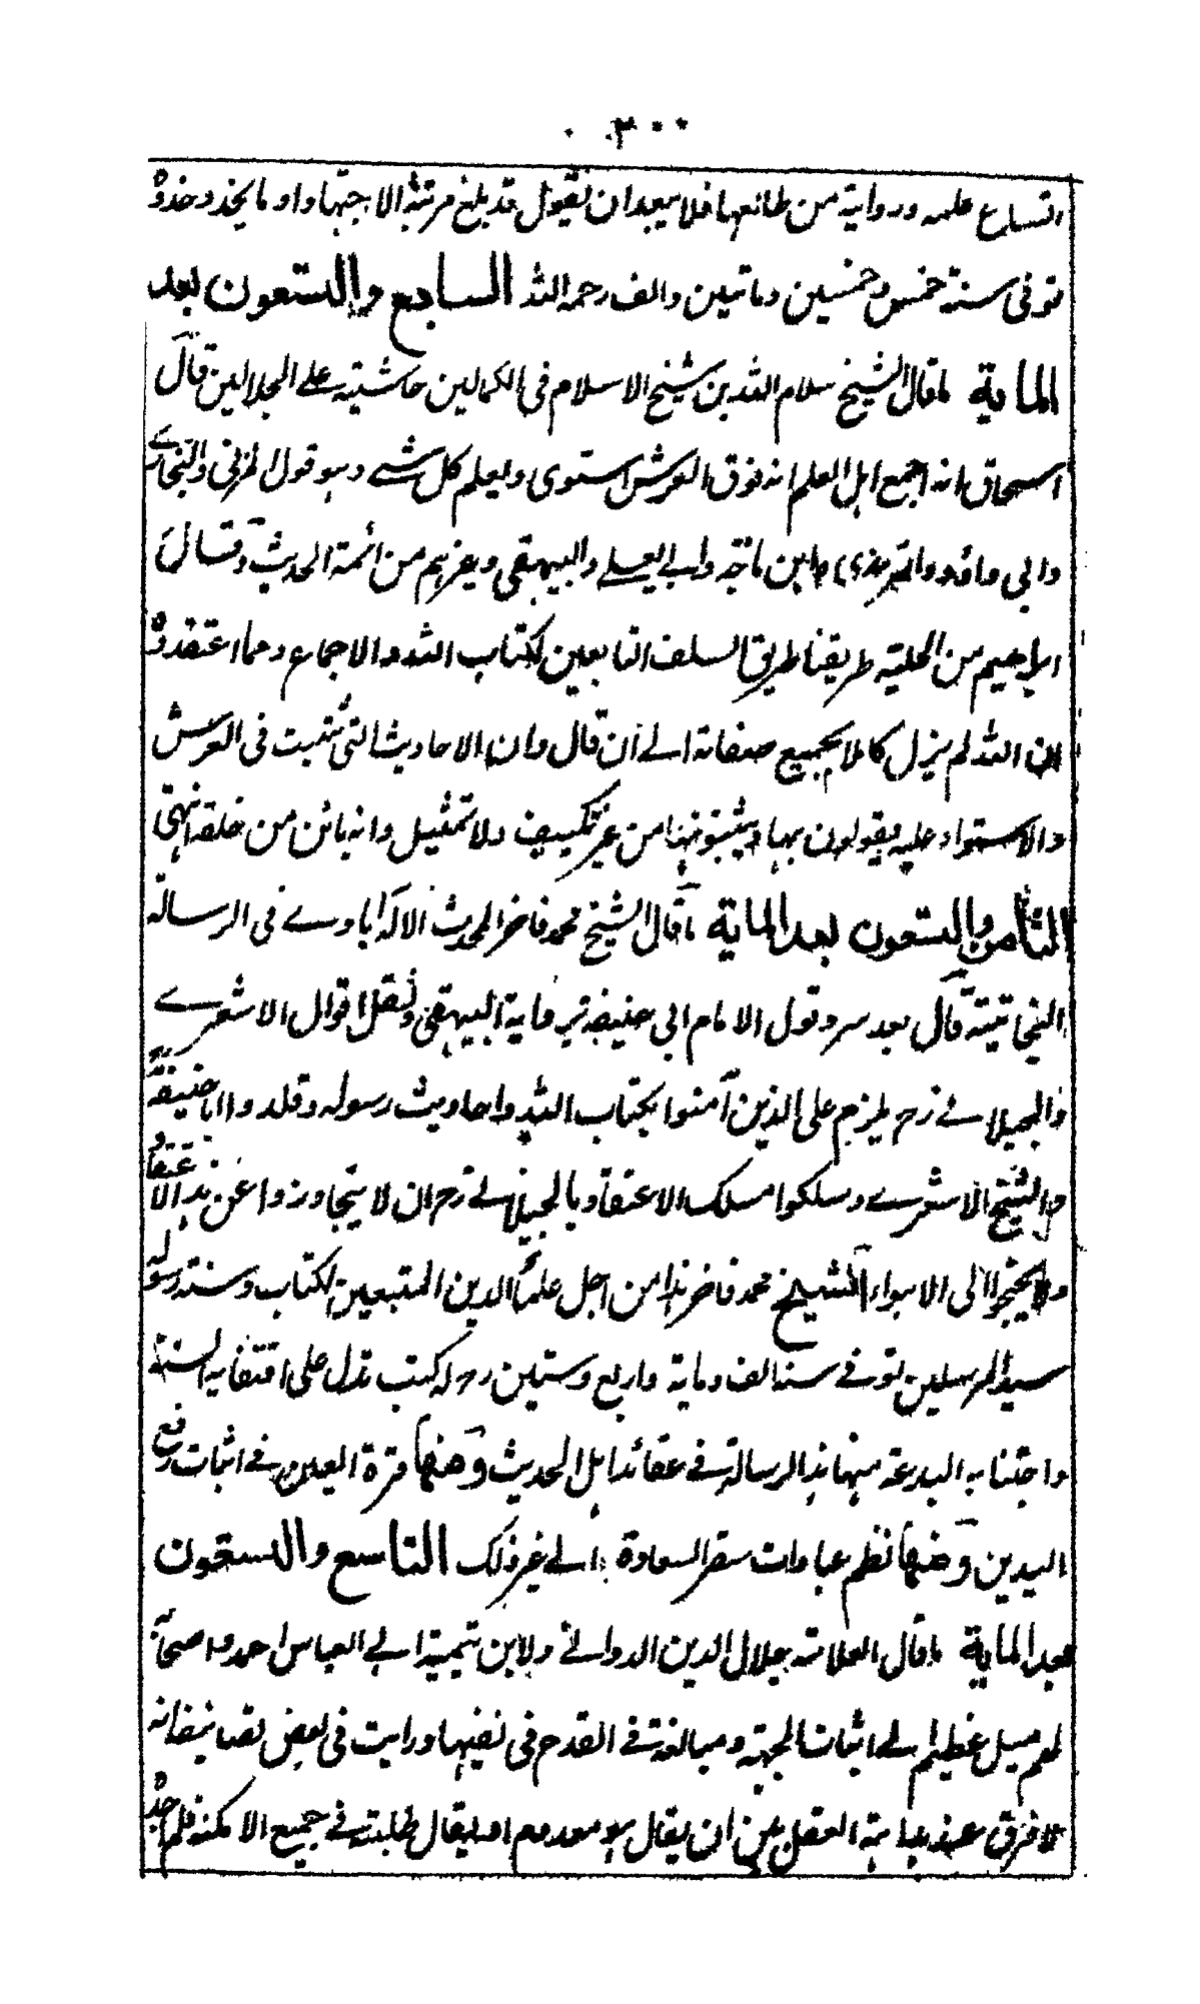 ٣٠٠
اتساع علمه ورواية من طالعها فلا يبعد ان نقول قد بلغ مرتبة الاجتهاد او ما يحذو حذوه
توفى سنة خمس وخمسين وماتين والف رحمه الله السابع والتسعون بعد
الماية ما قال الشيخ سلام الله بن شيخ الاسلام فى الكمالين حاشيته على الجلالين قال
اسحاق انه اجمع اهل العلم انه فوق العرش استوى ويعلم كل شے وهو قول المزنى والبخارے
وابي داؤد والترمذى وابن ماجة وابے يعلے والبيهقى وغيرهم من ائمة الحديث وقال
ابراهيم من الحلية طريقنا طريق السلف التابعين لكتاب الله والاجماع ومما اعتقدوه
ان الله لم يزل كاملا بجميع صفاته الے ان قال وان الاحاديث التى ثبتت فى العرش
والاستواء عليه يقولون بها ويثبتونها من غير تكييف ولا تمثيل وانه بائن من خلقه انتهى
الثامن والتسعون بعد الماية ما قال الشيخ محمد فاخر المحدث الاله ابادے فى الرسالة
النجاتية قال بعد سرد قول الامام ابى حنيفة برواية البيهقى ونقل اقوال الاشعرے
والجيلانے رح يلزم على الذين آمنوا بكتاب الله واحاديث رسوله وقلدوا ابا حنيفة
والشيخ الاشعرے وسلكوا مسلك الاعتقاد بالجيلانے رح ان لا يتجاوزوا عن هذا الاعتقاد
ولا يجنحوا الى الاهواء الشيخ محمد فاخر هذا من اجل علماء الدين المتبعين لكتاب وسنة رسوله
سيد المرسلين توفے سنة الف وماية واربع وستين رح له كتب تدل على اقتفائه السنة
واجتنابه البدعة منها هذا الرسالة فے عقائد اهل الحديث ومنها قرة العين فے اثبات رفع
اليدين ومنها نظم عبادات سفر السعادة الے غير ذلك التاسع والتسعون
بعد الماية ما قال العلامة جلال الدين الدوانے ولابن تيمية ابے العباس احمد واصحابه
لهم ميل عظيم الے اثبات الجهة ومبالغة فے القدح فى نفيها ورايت فى بعض تصانيفه انه
لا فرق عند بداهة العقل بين ان يقال هو معدوم او يقال طلبته فے جميع الامكنة فلم اجده